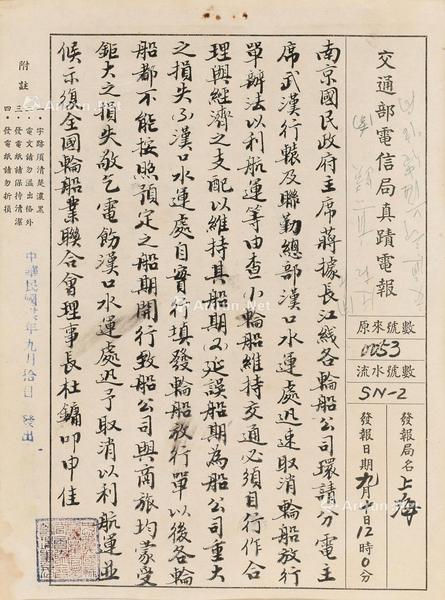 交通部電信局真蹟電報
原來號數
0053
流水號數
SN-2
發報局名 上海
發報日期 九月 日12時0分
南京國民政府主席蔣據長江綫各輪船公司環請分電主
席武漢行轅及聯勤總部漢口水運處迅速取消輪船放行
單辦法以利航運等由查(小)輪船維持交通必須自行作合
理與經濟之支配以維持其船期(又)延誤船期為船公司重大
之損失(又)漢口水運處自實行填發輪船放行單以後各輪
船都不能按照預定之船期開行致船公司與商旅均蒙受
鉅大之損失敬乞電飭漢口水運處迅予取消以利航運並
候示復全國輪船業聯合會理事長杜鏞叩申佳
附註
一 字跡須清楚濃黑
二 電文請勿溢出格外
三 發電紙請保持清潔
四 發電紙請勿折損
中華民國卅六年九月拾日 發出